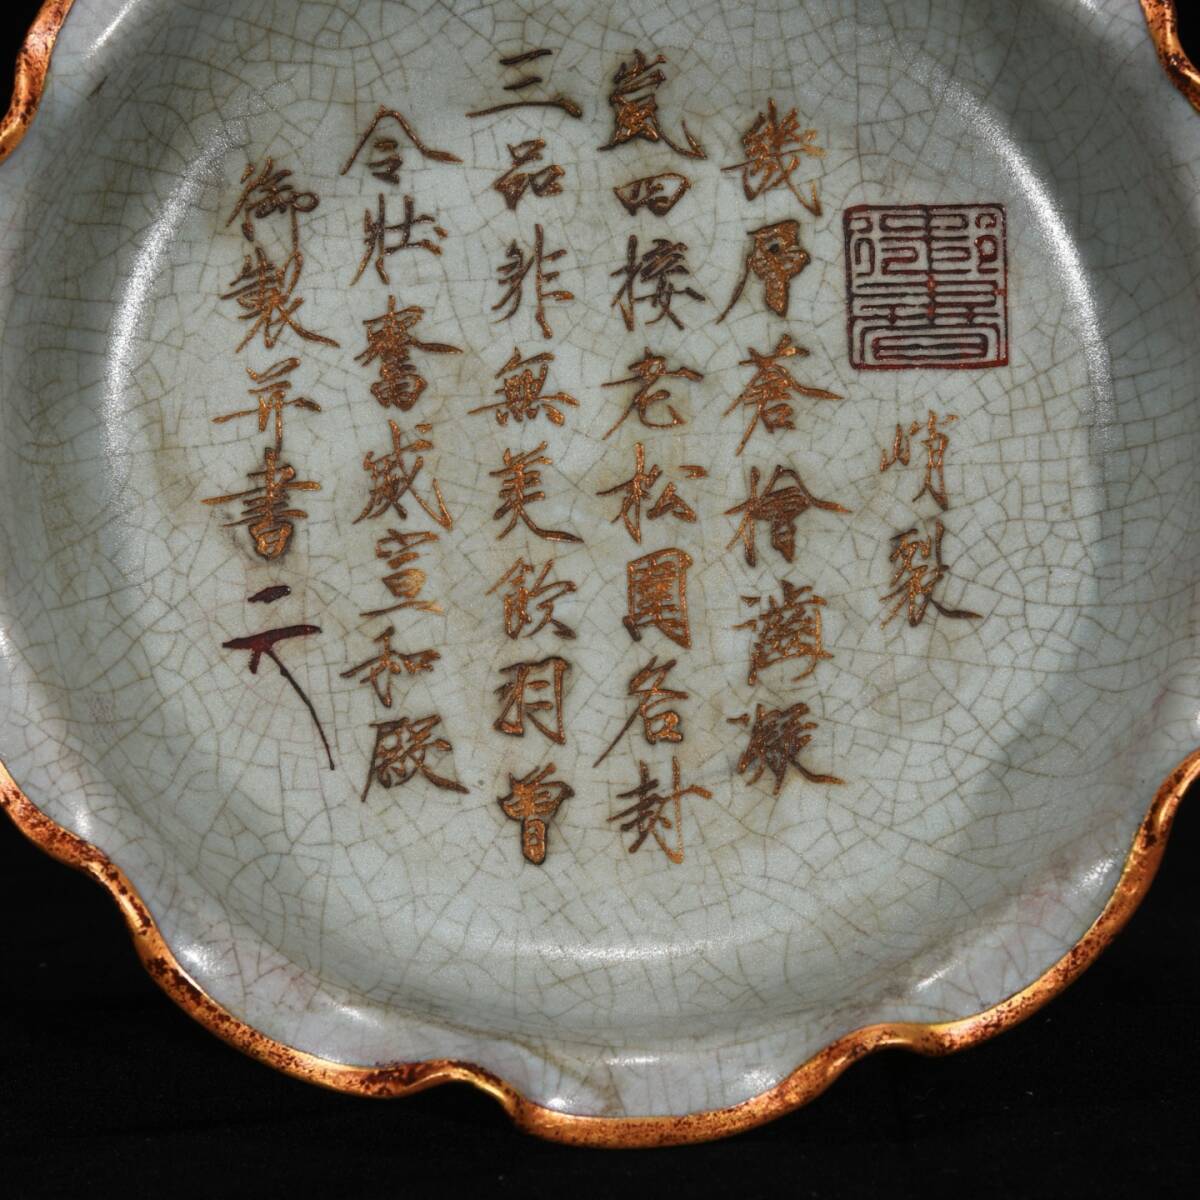 峭裂
幾層蒼檜齒凝
嵐四接老松圍各封
三品非無美飲羽曾
令壯奮威宣和殿
御製并書